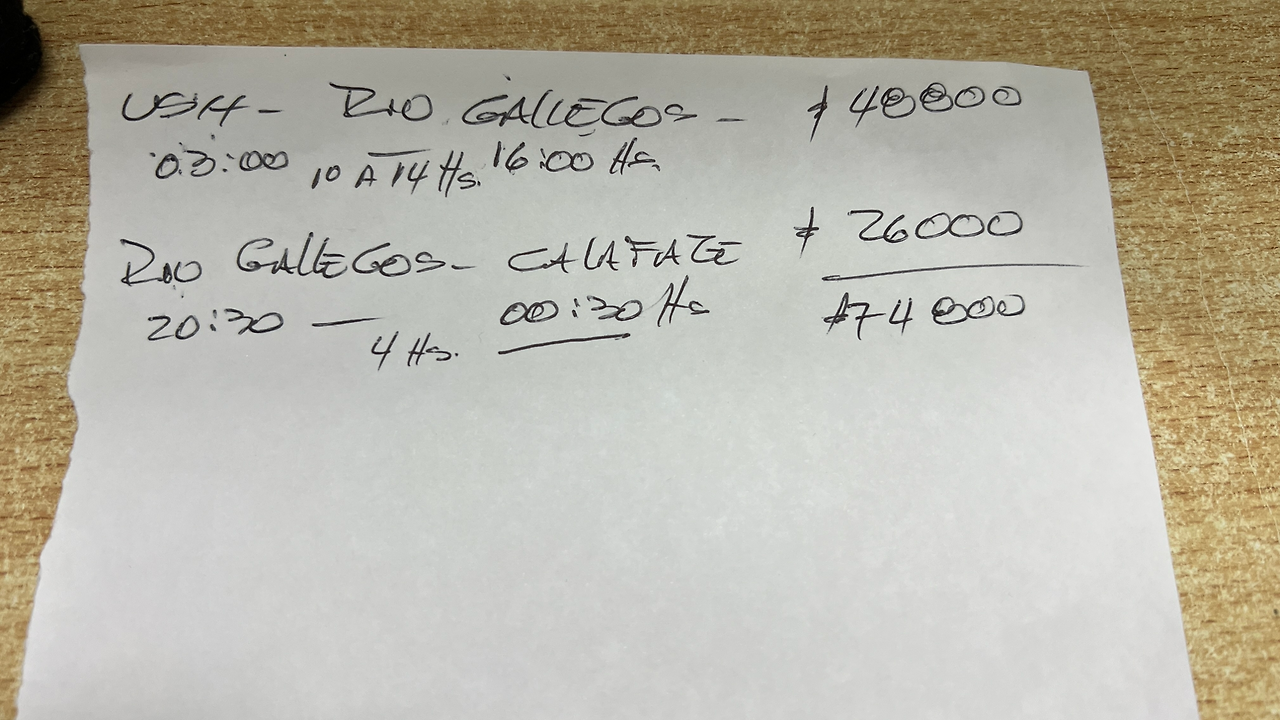 USH - RIO GALLEGOS - $ 48800
03:00 10 A 14 Hs. 16:00 Hs.
RIO GALLEGOS - CALAFATE $ 26000
20:30 — 4 Hs. 00:30 Hs $74800